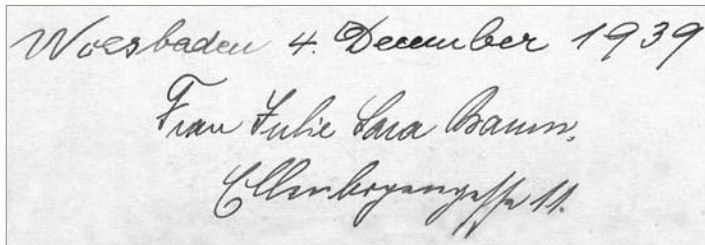 Wiesbaden 4. December 1939
Frau Julie Sara Baum,
Ellenbogengasse 11.